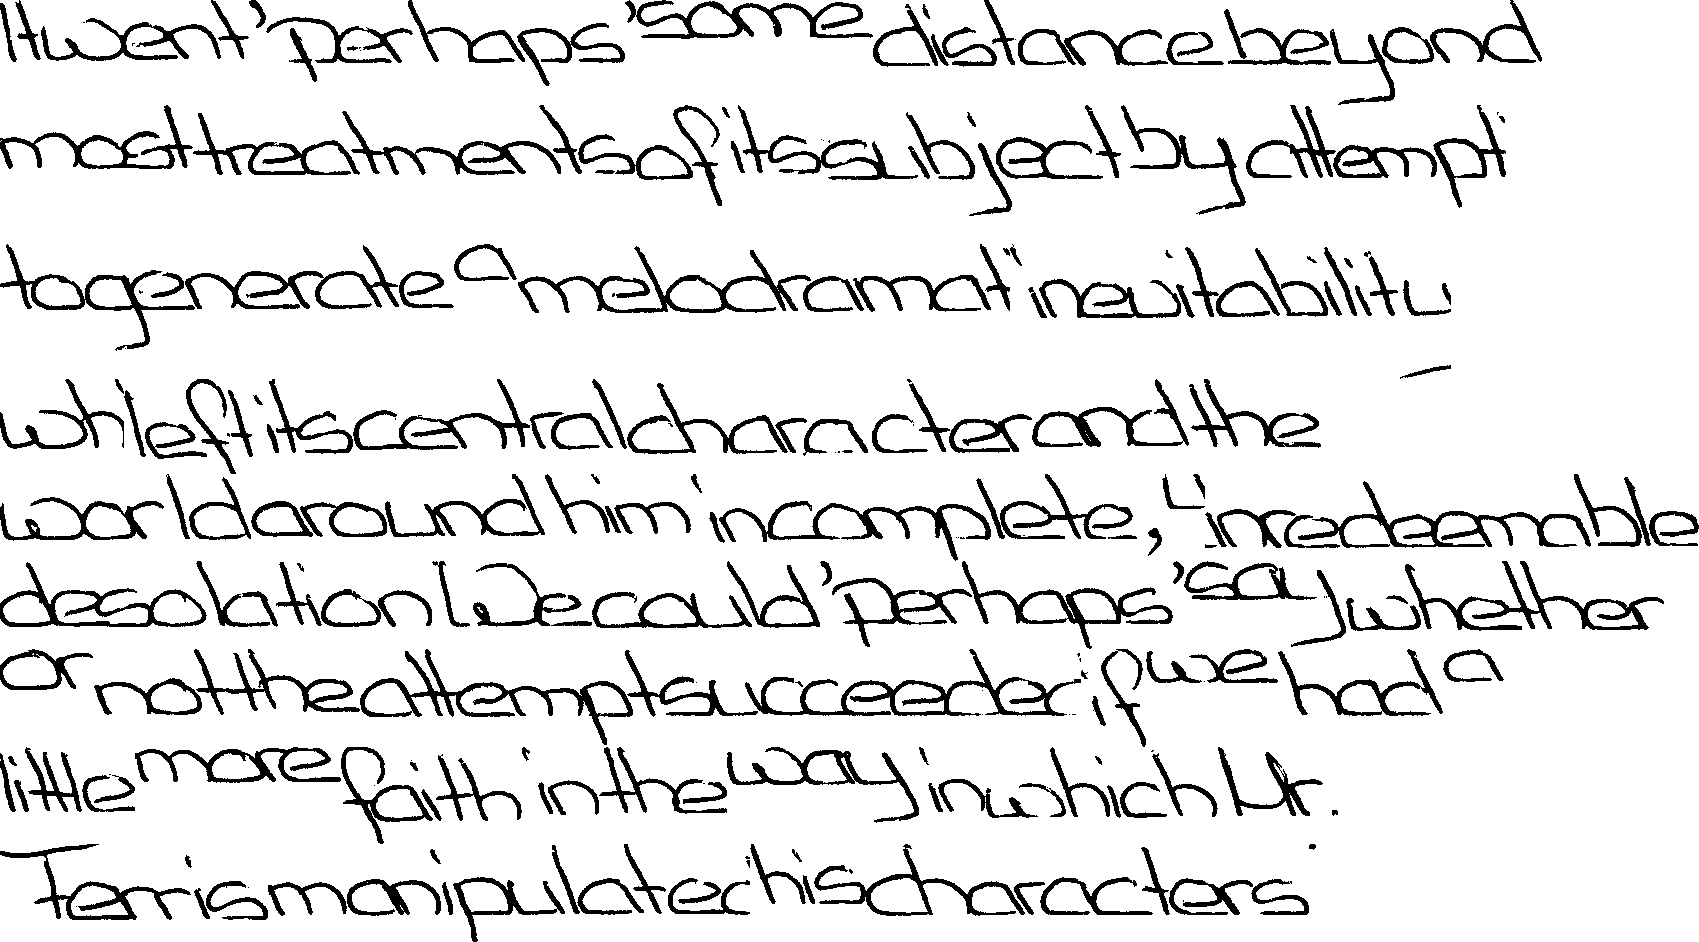 It went, perhaps, some distance beyond
most treatments of its subject by attempt
to generate a melodramat inevitability
wh left its central character and the
world around him in complete, inredeemable
desolation We could, perhaps, say whether
or not the attempt succeeded if we had a
little more faith in the way in which Mr.
Terris manipulated his characters